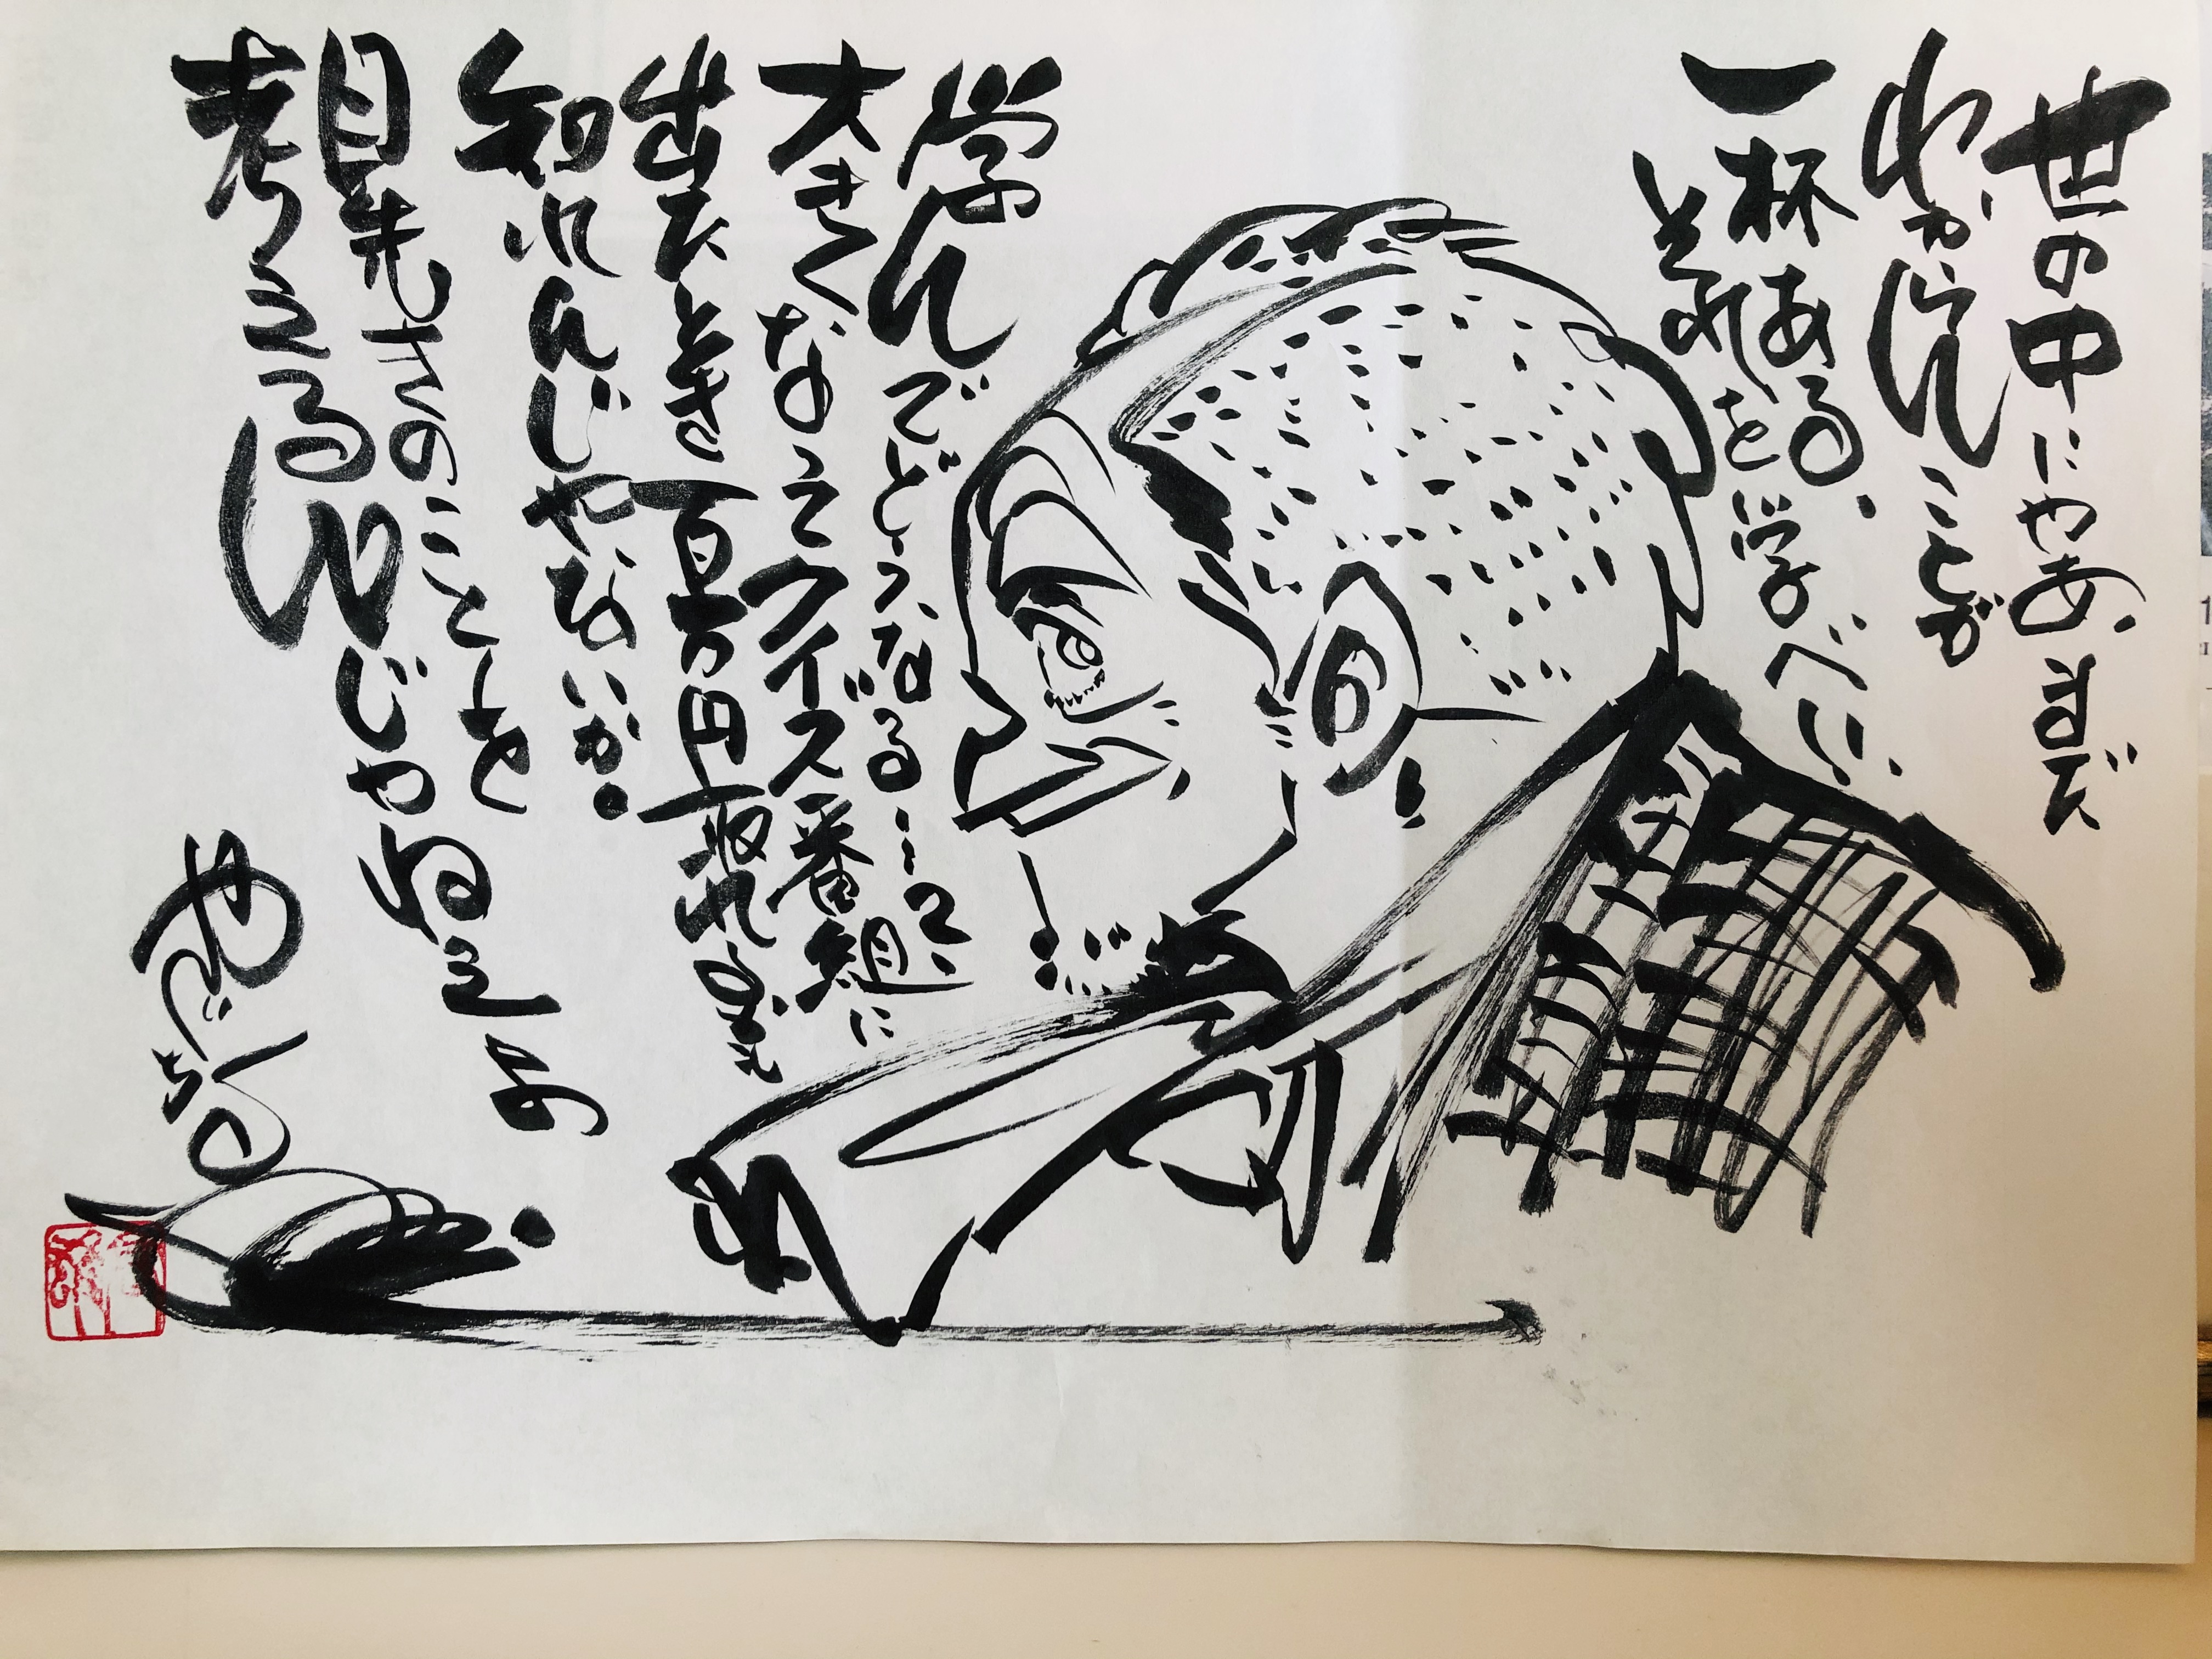 世の中にやあ、まだ
わからんことが
一杯ある、
それを学べに、
学んでどうなる……て、
大きくなってクイス番組に
出たとき百万円取れるかも
知れんじゃないか。
目先きのことを
考えるんじゃねえよ